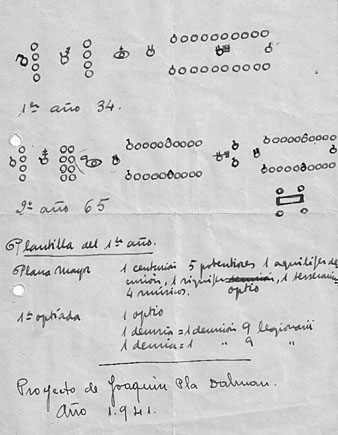 1er año 34.
2º año 65
Plantilla del 1er año.
Plana mayor 1 centurión 5 potentiores 1 aquilifer de-
curión, 1 signifer 1 tesserarius
4 músicos. optio
1ª optiada 1 optio
1 decuria = 1 decurión 9 legionarii
1 decuria = 1 " 9 "
Proyecto de Joaquin Pla Dalmau.
Año 1.941.